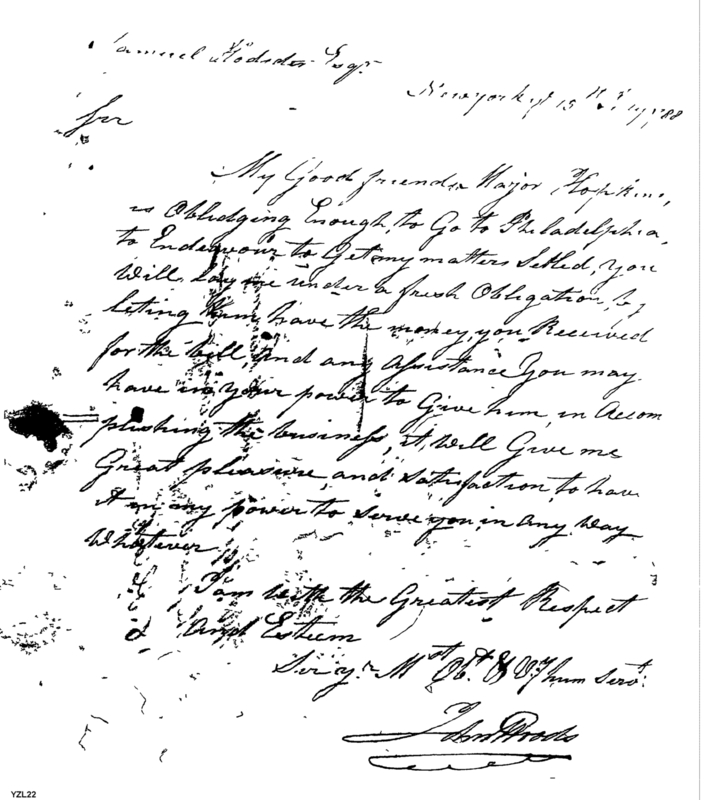 Samuel Hodgdon Esqr
Newyork 15th 1788
Sir
My Good friend Major Hopkins,
is Oblidging Enough, to Go to Philadelphia,
to Endeavour to Get my matters Setled, You
Will Lay me under a fresh Obligation, by
leting him have the money, you Received
for the bill, and any Assistance You may
have in your power to Give him, in Accom
plishing the business, it Will Give me
Great pleasure and satisfaction to have
it in my power to serve you, in Any Way
Whatever
I am with the Greatest Respect
And Esteem
Sir yr. Mst Obt. & Vy hum Servt:
John Woods
YZL22